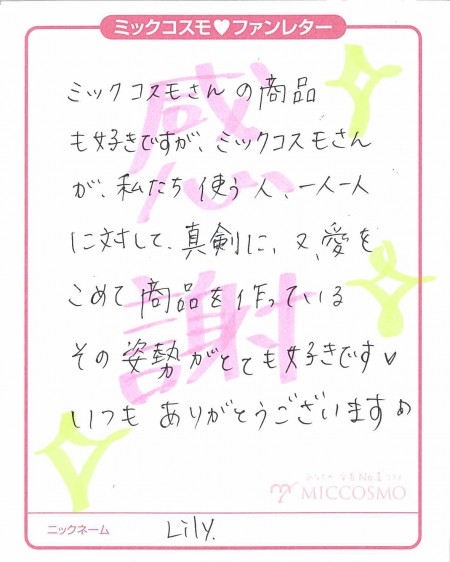 ミックコスモ♥ファンレター
感謝
ミックコスモさんの商品
も好きですが、ミックコスモさん
が、私たち使う人、一人一人
に対して、真剣に、又、愛を
こめて商品を作っている
その姿勢がとても好きです♥
いつもありがとうございます
MICCOSMO
ニックネーム Lily.